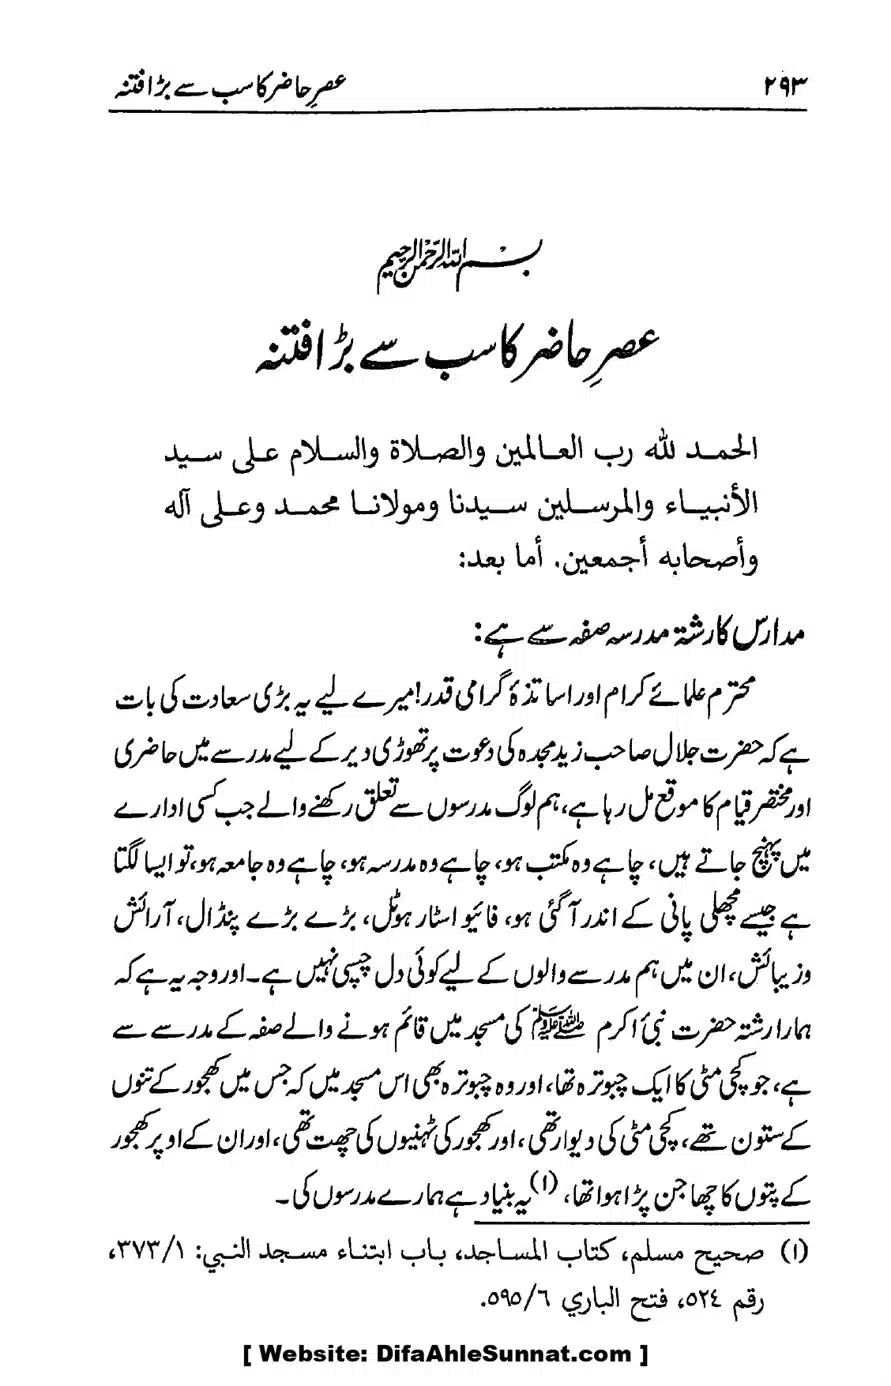 ۲۹۳ عصرِ حاضر کا سب سے بڑا فتنہ
بسم اللہ الرحمن الرحیم
عصرِ حاضر کا سب سے بڑا فتنہ
الحمد لله رب العالمين والصلاة والسلام على سيد
الأنبياء والمرسلين سيدنا ومولانا محمد وعلى آله
وأصحابه أجمعين. أما بعد:
مدارس کا رشتہ مدرسہ صفہ سے ہے:
محترم علمائے کرام اور اساتذۂ گرامی قدر! میرے لیے یہ بڑی سعادت کی بات
ہے کہ حضرت جلال صاحب زید مجدہ کی دعوت پر تھوڑی دیر کے لیے مدرسے میں حاضری
اور مختصر قیام کا موقع مل رہا ہے، ہم لوگ مدرسوں سے تعلق رکھنے والے جب کسی ادارے
میں پہنچ جاتے ہیں، چاہے وہ مکتب ہو، چاہے وہ مدرسہ ہو، چاہے وہ جامعہ ہو، تو ایسا لگتا
ہے جیسے مچھلی پانی کے اندر آگئی ہو، فائیو اسٹار ہوٹل، بڑے بڑے پنڈال، آرائش
وزیبائش، ان میں ہم مدرسے والوں کے لیے کوئی دل چسپی نہیں ہے۔ اور وجہ یہ ہے کہ
ہمارا رشتہ حضرت نبیٔ اکرم ﷺ کی مسجد میں قائم ہونے والے صفہ کے مدرسے سے
ہے، جو کچی مٹی کا ایک چبوترہ تھا، اور وہ چبوترہ بھی اس مسجد میں کہ جس میں کھجور کے تنوں
کے ستون تھے، کچی مٹی کی دیوار تھی، اور کھجور کی ٹہنیوں کی چھت تھی، اور ان کے اوپر کھجور
کے پتوں کا چھاجن پڑا ہوا تھا، (۱) یہ بنیاد ہے ہمارے مدرسوں کی۔
(۱) صحيح مسلم، كتاب المساجد، باب ابتناء مسجد النبي: ۳۷۳/۱،
رقم ٥٢٤، فتح الباري ٥٩٥/٦.
[ Website: DifaAhleSunnat.com ]